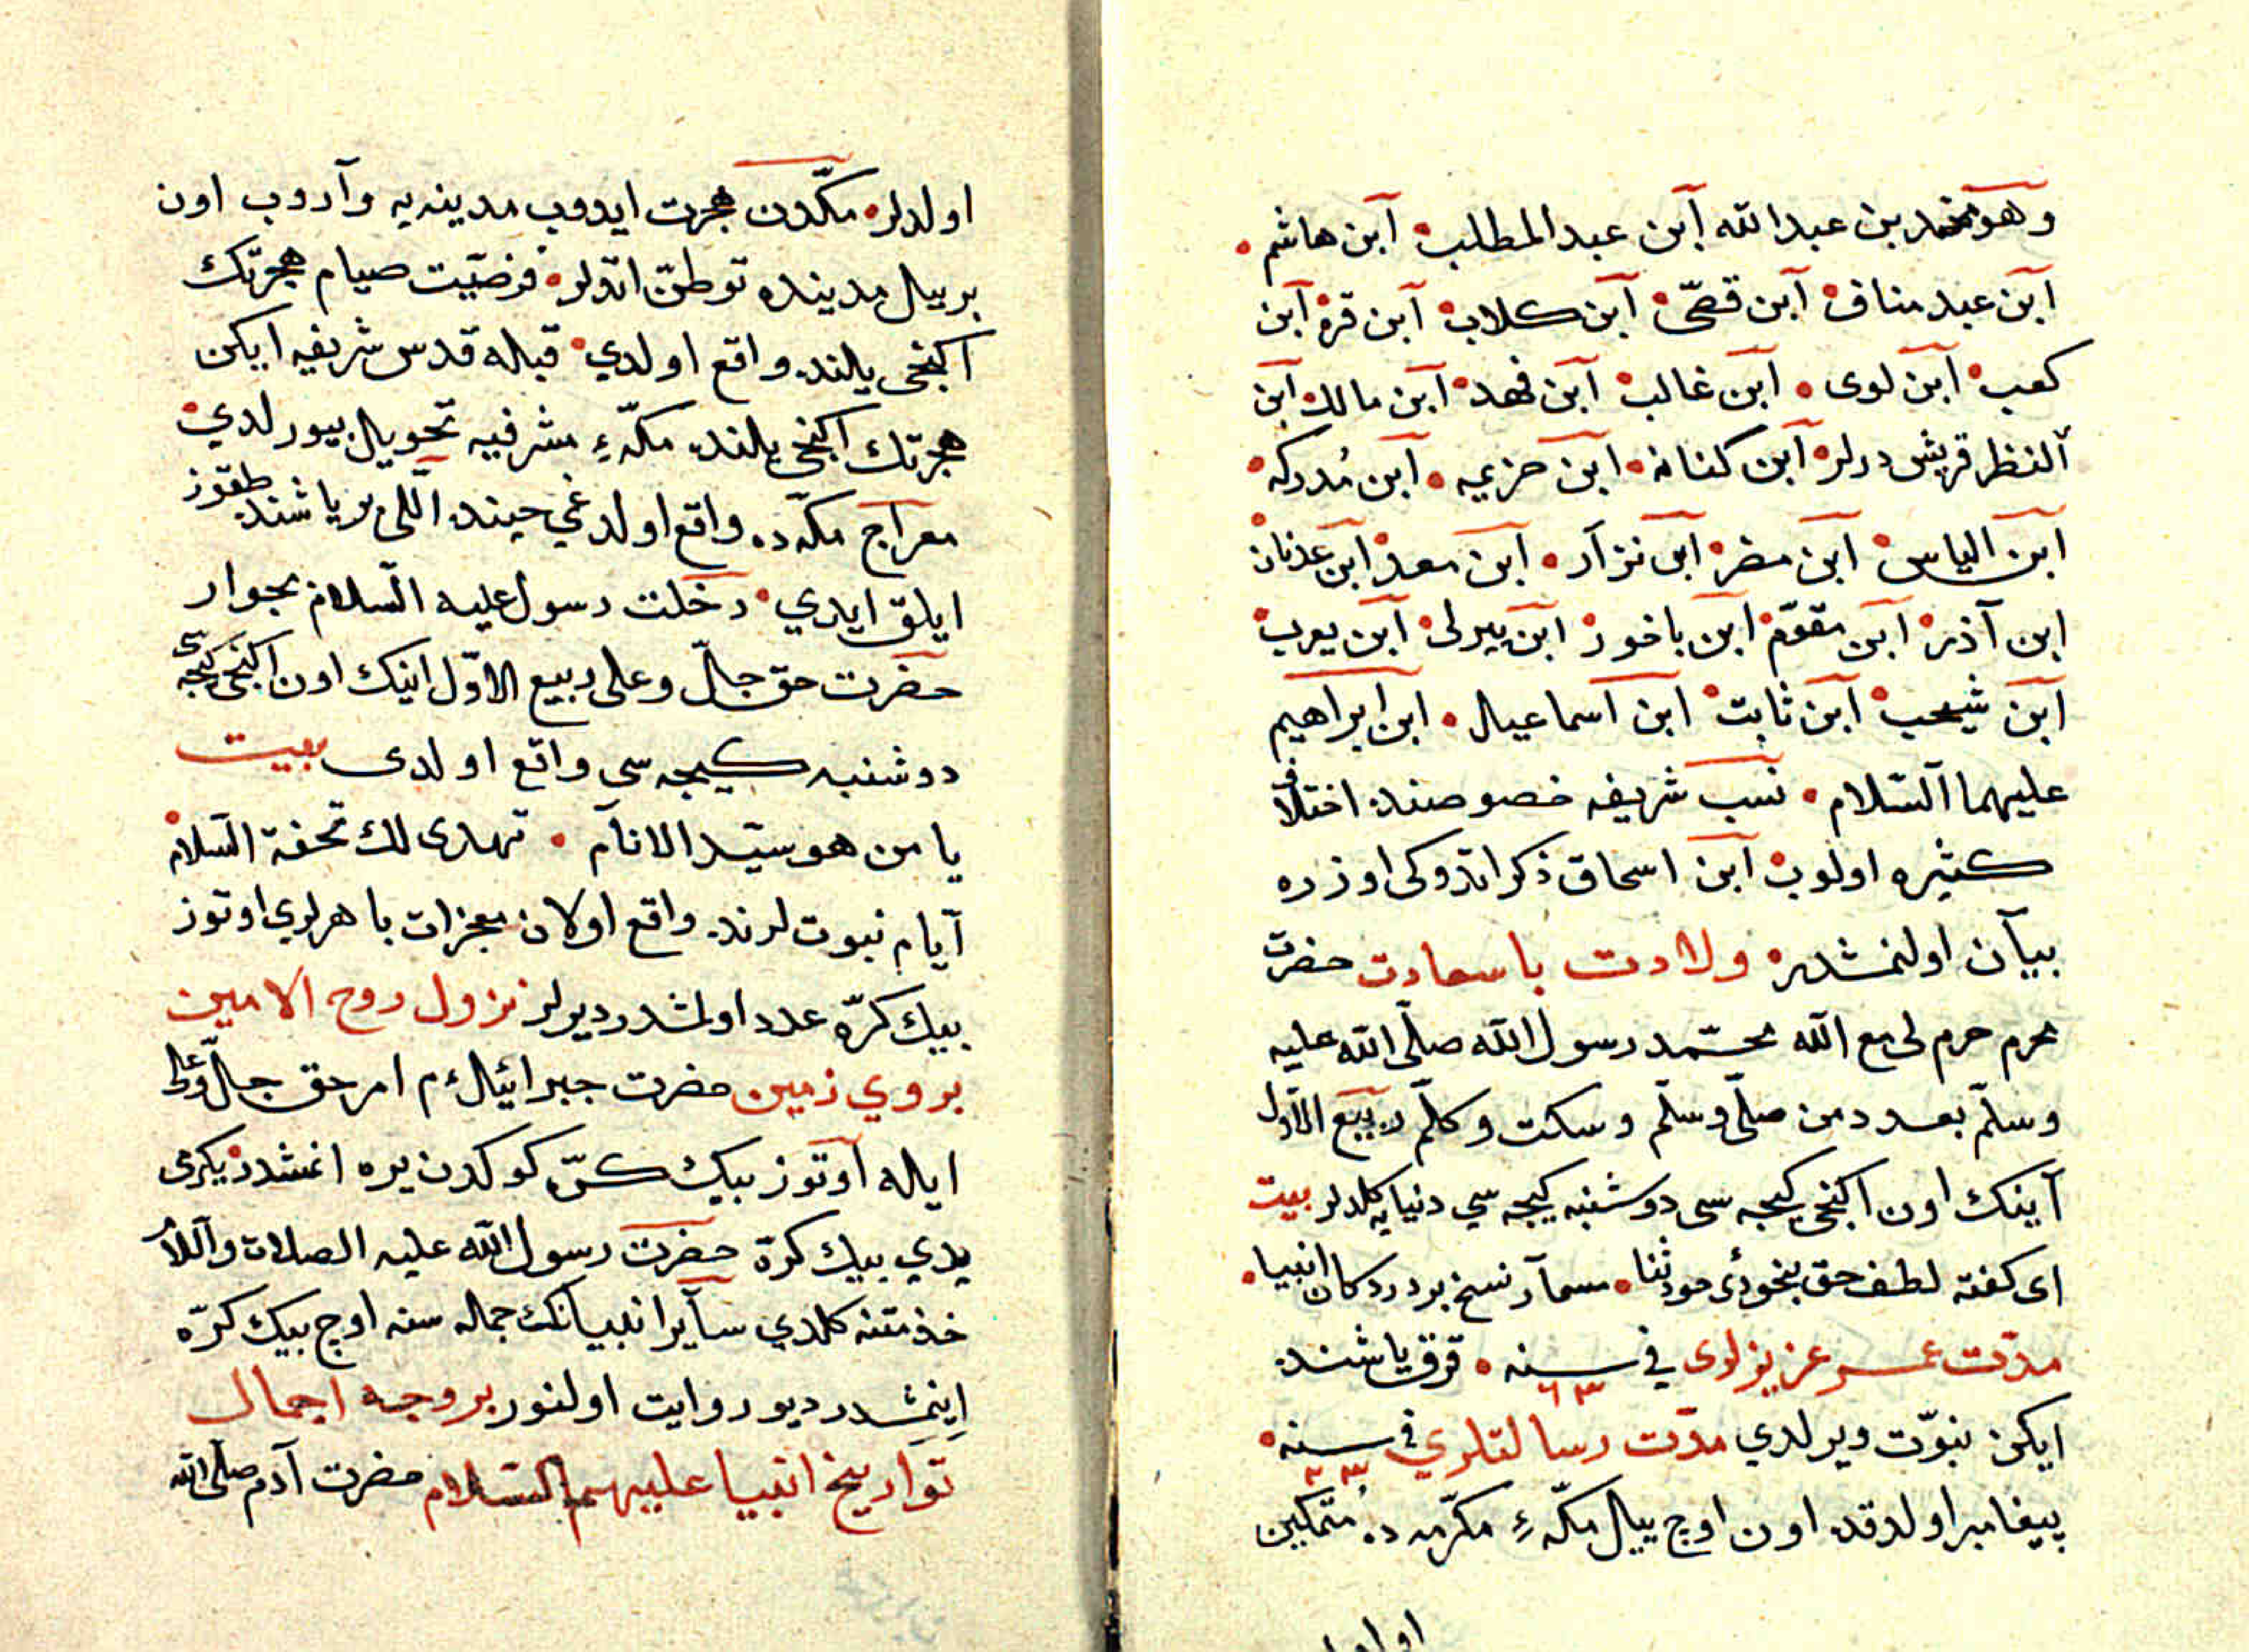 وهو محمد بن عبدالله ابن عبدالمطلب ابن هاشم
ابن عبد مناف ابن قصّى ابن كلاب ابن قره ابن
كعب ابن لوى ابن غالب ابن فهد ابن مالك ابن
النظر قريش درلر ابن كنانه ابن حزيمه ابن مُدركه
ابن الياس ابن مضر ابن نزآر ابن معد ابن عدنان
ابن آذر ابن مقوّم ابن ياخور ابن بيرلى ابن يعرب
ابن شيحب ابن ثابت ابن اسماعيل ابن ابراهيم
عليهما السّلام نسب شريفه خصوصنده اختلاف
كثيره اولوب ابن اسحاق ذكر اتدوكى اوزره
بيآن اولنمشدر ولادت باسعادت حضرت
محرم حرم لى مع الله محمّد رسول الله صلّى الله عليه
وسلّم بعدد من صلّى وسلّم وسكت وكلّم ربيع الاوّل
آينك اون اكنجى كيجه سى دوشنبه كيجه سي دنيايه كلدلر بيت
اى كفته لطف حق بخودئ خود ثنا مسمار نسخ بر در دكان انبيا
مدّت عمر عزيزلرى في سنه ٦٣ قرق ياشنده
ايكن نبوّت ويرلدي مدّت رسالتلري في سنه ٢٣
پيغامبر اولدقده اون اوچ ييل مكّهء مكرّمه ده متمكين
اولدلر مكّدن هجرت ايدوب مدينه يه وآروب اون
بر ييل مدينده توطّن اتدلر فرضيّت صيام هجرتك
اكنجى يلنده واقع اولدي قبله قدس شريفه ايكن
هجرتك اكنجى يلنده مكّهء مشرفيه تحويل بيورلدي
معراج مكّه ده واقع اولدغي حينده اللى بر ياشنده طقوز
ايلق ايدي رحلت رسول عليه السّلام بجوار
حضرت حق جلّ وعلى ربيع الاوّل اينك اون اكنجى كيجه سى
دوشنبه كيجه سى واقع اولدى بيت
يا من هو سيّد الانآم تهدى لك تحفة السّلام
آيام نبوت لرنده واقع اولان معجزات باهرلري اوتوز
بيك كرّه عدد اولمشدر ديرلر نزول روح الامين
بروي زمين حضرت جبرائيل ءم امر حق جلّ وعلا
ايله اوتوز بيك كرّه كوكدن يره اغمشدر يكرمى
يدي بيك كرة حضرت رسول الله عليه الصلات والسلام
خذمتنه كلدي سآير انبيانك جمله سنه اوچ بيك كرّه
اينمشدر ديو روايت اولنور بر وجه اجمال
توآريخ انبيا عليهم السّلام حضرت آدم صلّى الله